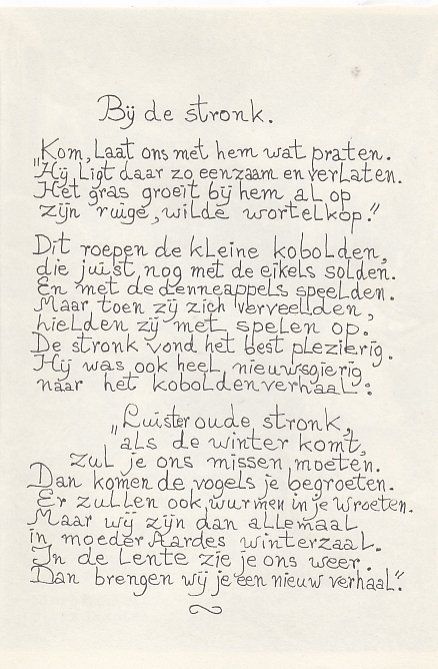 Bij de stronk.
„Kom, laat ons met hem wat praten.
Hij ligt daar zo eenzaam en verlaten.
Het gras groeit bij hem al op
zijn ruige, wilde wortelkop."
Dit roepen de kleine kobolden,
die juist nog met de eikels solden.
En met de denneappels speelden.
Maar toen zij zich verveelden,
hielden zij met spelen op.
De stronk vond het best plezierig.
Hij was ook heel nieuwsgierig
naar het koboldenverhaal:
„Luister oude stronk,
als de winter komt,
zul je ons missen moeten.
Dan komen de vogels je begroeten.
Er zullen ook wurmen in je wroeten.
Maar wij zijn dan allemaal
in moeder Aardes winterzaal.
In de lente zie je ons weer.
Dan brengen wij je een nieuw verhaal."